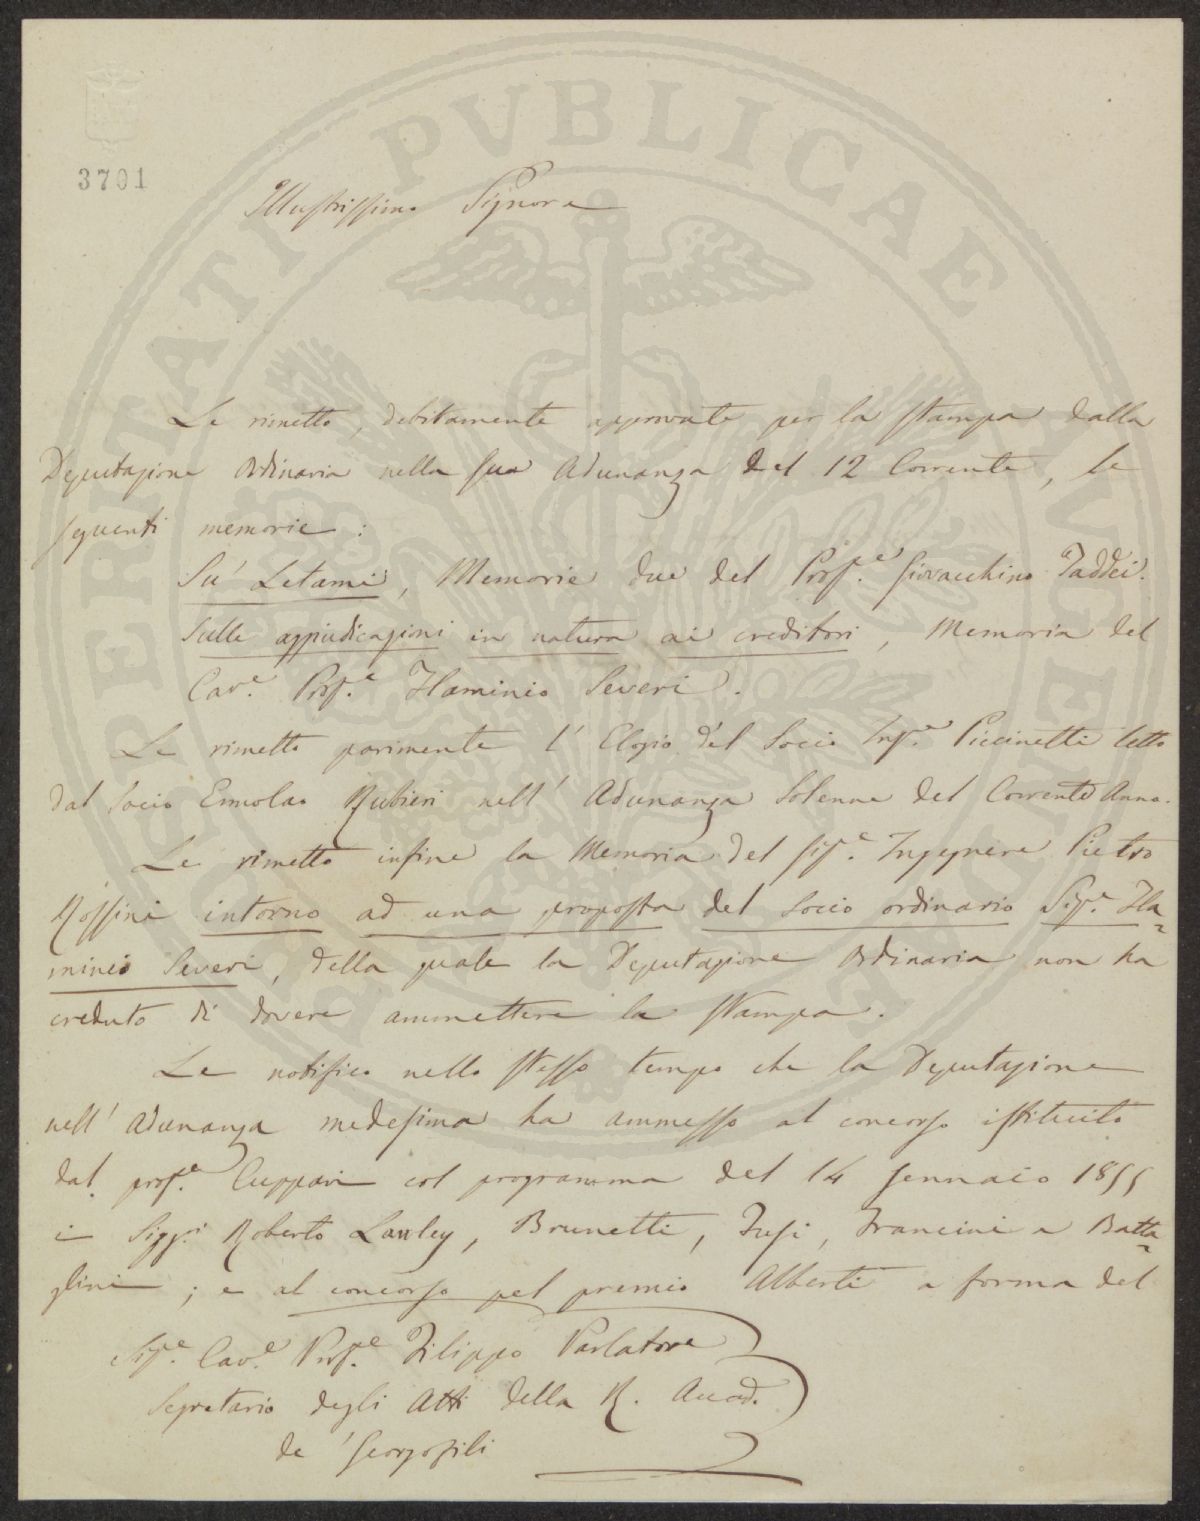 PROSPERITATI PVBLICAE AVGENDAE
3701
Illustrissimo Signore
Le rimetto, debitamente approvate per la stampa dalla
Deputazione Ordinaria nella sua Adunanza del 12 Corrente, le
seguenti memorie:
Su' Letami, Memorie due del Prof.e Giovacchino Taddei.
Sulle aggiudicazioni in natura ai creditori, Memoria del
Cav.e Prof.e Flaminio Severi.
Le rimetto parimente l'Elogio del Socio Ing.e Piccinetti letto
dal Socio Ermolao Rubieri nell'Adunanza Solenne del Corrente Anno.
Le rimetto infine la Memoria del Sig.e Ingegnere Pietro
Rossini intorno ad una proposta del Socio ordinario Sig.e Fla=
minio Severi, della quale la Deputazione Ordinaria non ha
creduto di dovere ammettere la stampa.
Le notifico nello stesso tempo che la Deputazione
nell'Adunanza medesima ha ammesso al concorso istituito
dal prof.e Cuppari col programma del 14 Gennaio 1855
i Sigg.i Roberto Lawley, Brunetti, Fusi, Francini e Batta=
glini; e al concorso pel premio Alberti a forma del
Sig.e Cav.e Prof.e Filippo Parlatore
Segretario degli Atti della R. Accad.
de' Georgofili